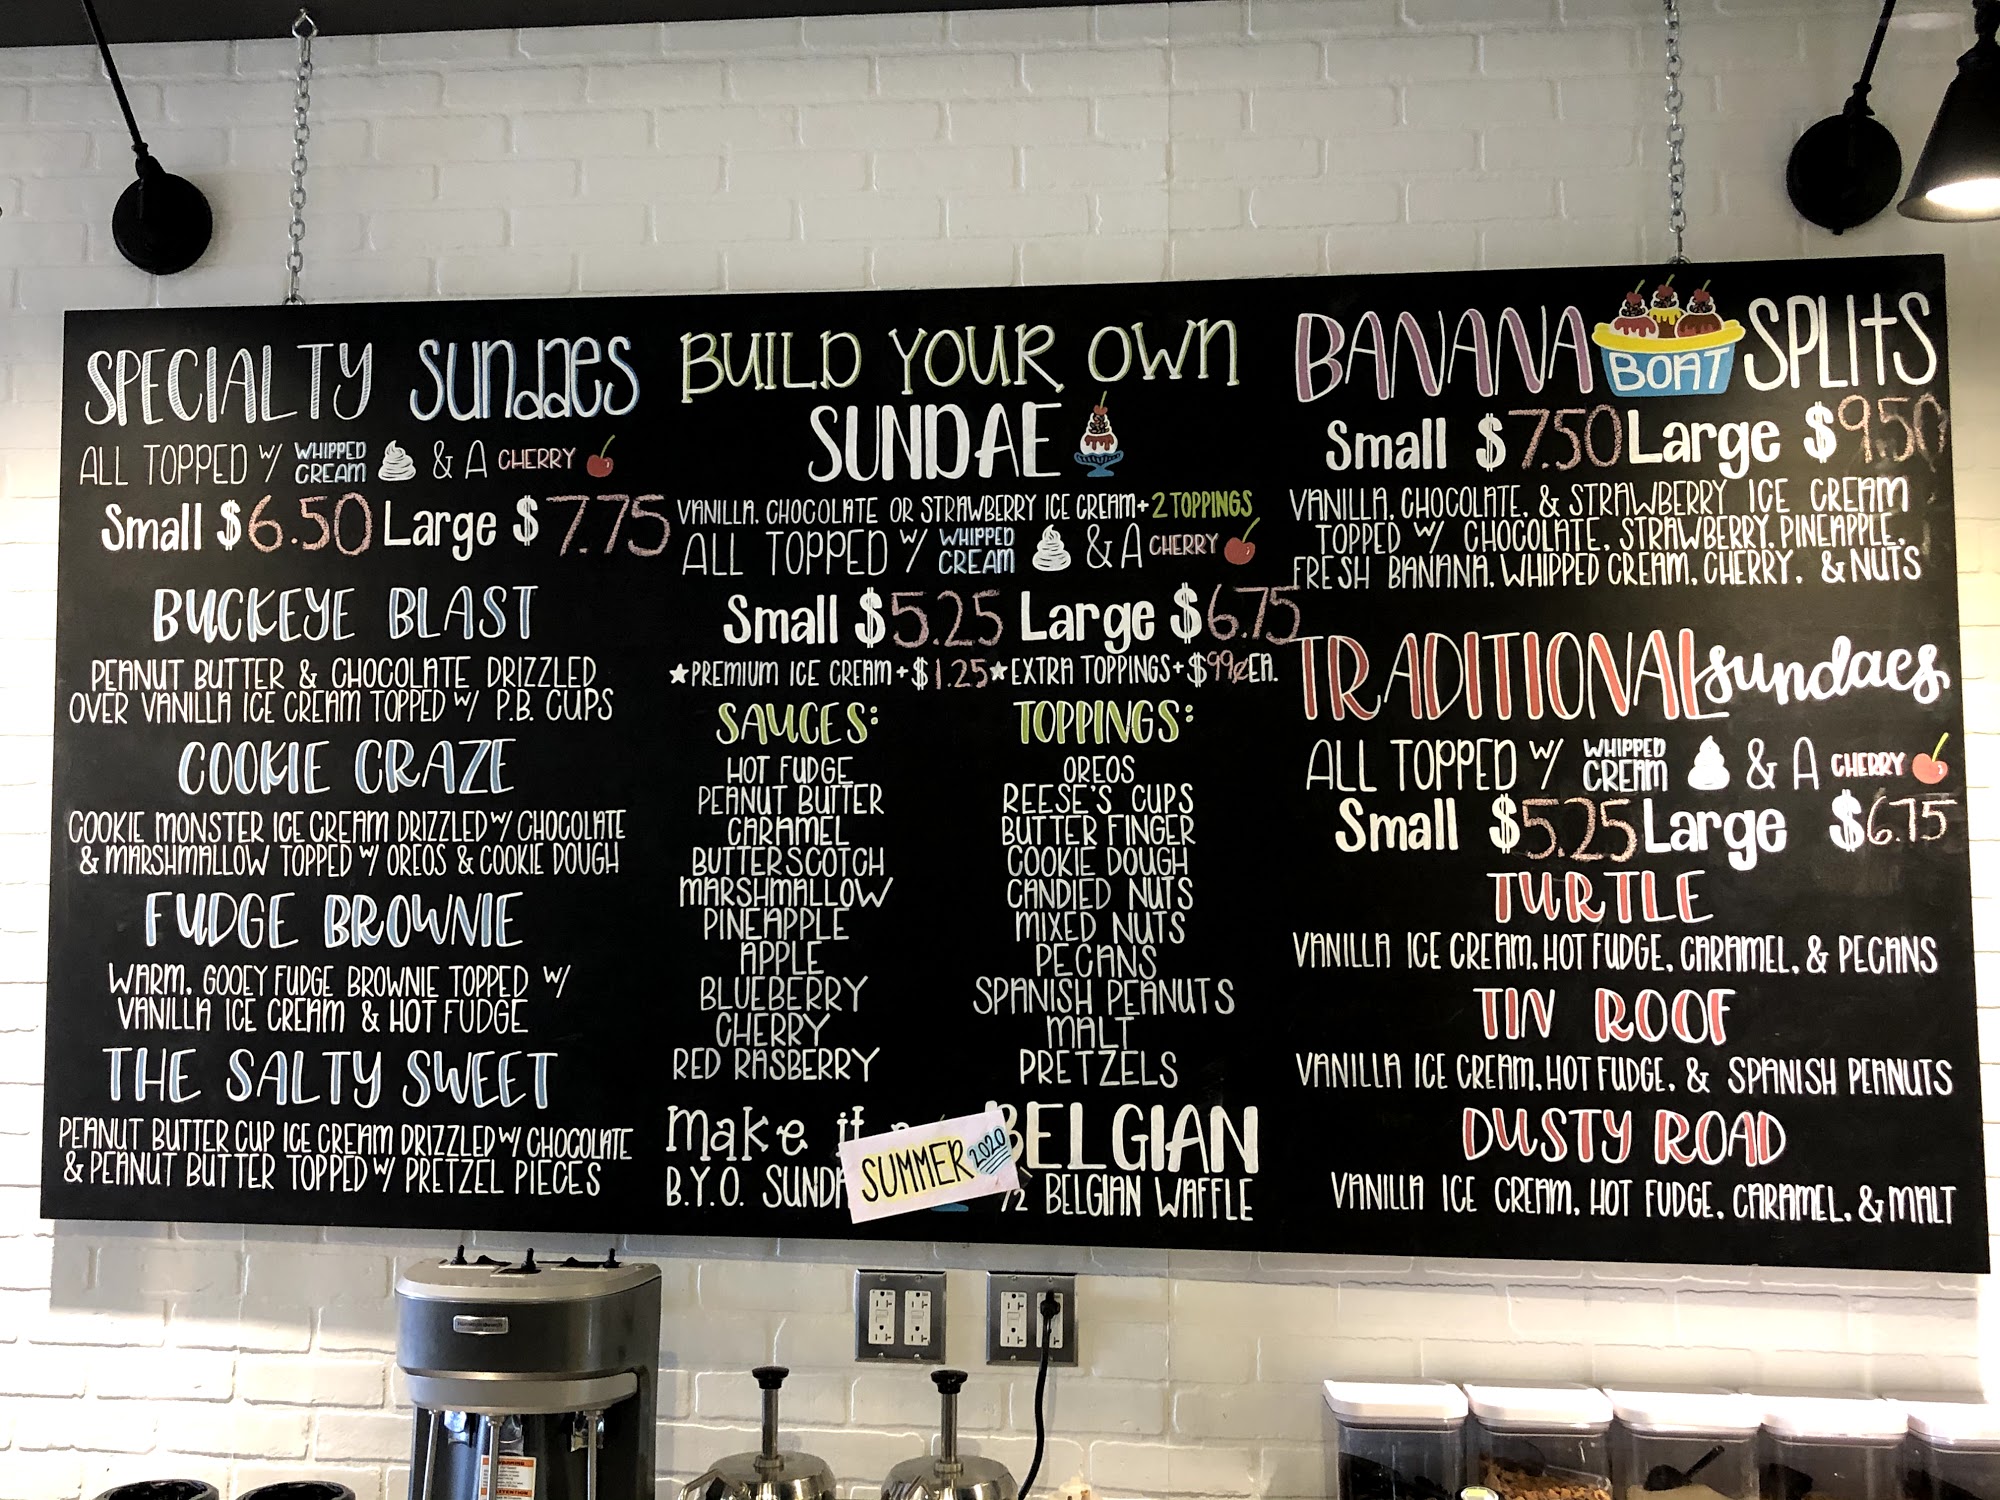 SPECIALTY SUNDAES
ALL TOPPED W/ WHIPPED CREAM & A CHERRY
Small $6.50 Large $7.75
BUCKEYE BLAST
PEANUT BUTTER & CHOCOLATE DRIZZLED
OVER VANILLA ICE CREAM TOPPED W/ P.B. CUPS
COOKIE CRAZE
COOKIE MONSTER ICE CREAM DRIZZLED W/ CHOCOLATE
& MARSHMALLOW TOPPED W/ OREOS & COOKIE DOUGH
FUDGE BROWNIE
WARM, GOOEY FUDGE BROWNIE TOPPED W/
VANILLA ICE CREAM & HOT FUDGE
THE SALTY SWEET
PEANUT BUTTER CUP ICE CREAM DRIZZLED W/ CHOCOLATE
& PEANUT BUTTER TOPPED W/ PRETZEL PIECES
BUILD YOUR OWN
SUNDAE
VANILLA, CHOCOLATE OR STRAWBERRY ICE CREAM + 2 TOPPINGS
ALL TOPPED W/ WHIPPED CREAM & A CHERRY
Small $5.25 Large $6.75
★PREMIUM ICE CREAM + $1.25 ★EXTRA TOPPINGS + $99¢ EA.
SAUCES:
HOT FUDGE
PEANUT BUTTER
CARAMEL
BUTTERSCOTCH
MARSHMALLOW
PINEAPPLE
APPLE
BLUEBERRY
CHERRY
RED RASBERRY
TOPPINGS:
OREOS
REESE'S CUPS
BUTTER FINGER
COOKIE DOUGH
CANDIED NUTS
MIXED NUTS
PECANS
SPANISH PEANUTS
MALT
PRETZELS
make it BELGIAN
B.Y.O. SUNDA 1/2 BELGIAN WAFFLE
SUMMER 2020
BANANA BOAT SPLITS
Small $7.50 Large $9.50
VANILLA, CHOCOLATE, & STRAWBERRY ICE CREAM
TOPPED W/ CHOCOLATE, STRAWBERRY, PINEAPPLE,
FRESH BANANA, WHIPPED CREAM, CHERRY, & NUTS
TRADITIONAL sundaes
ALL TOPPED W/ WHIPPED CREAM & A CHERRY
Small $5.25 Large $6.75
TURTLE
VANILLA ICE CREAM, HOT FUDGE, CARAMEL, & PECANS
TIN ROOF
VANILLA ICE CREAM, HOT FUDGE, & SPANISH PEANUTS
DUSTY ROAD
VANILLA ICE CREAM, HOT FUDGE, CARAMEL, & MALT